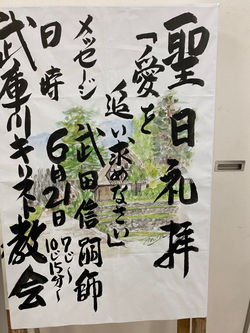 聖日礼拝
「愛を
追い求めなさい」
メッセージ 武田信嗣師
日時 6月21日
7じ〜
10じ15分〜
武庫川キリスト教会